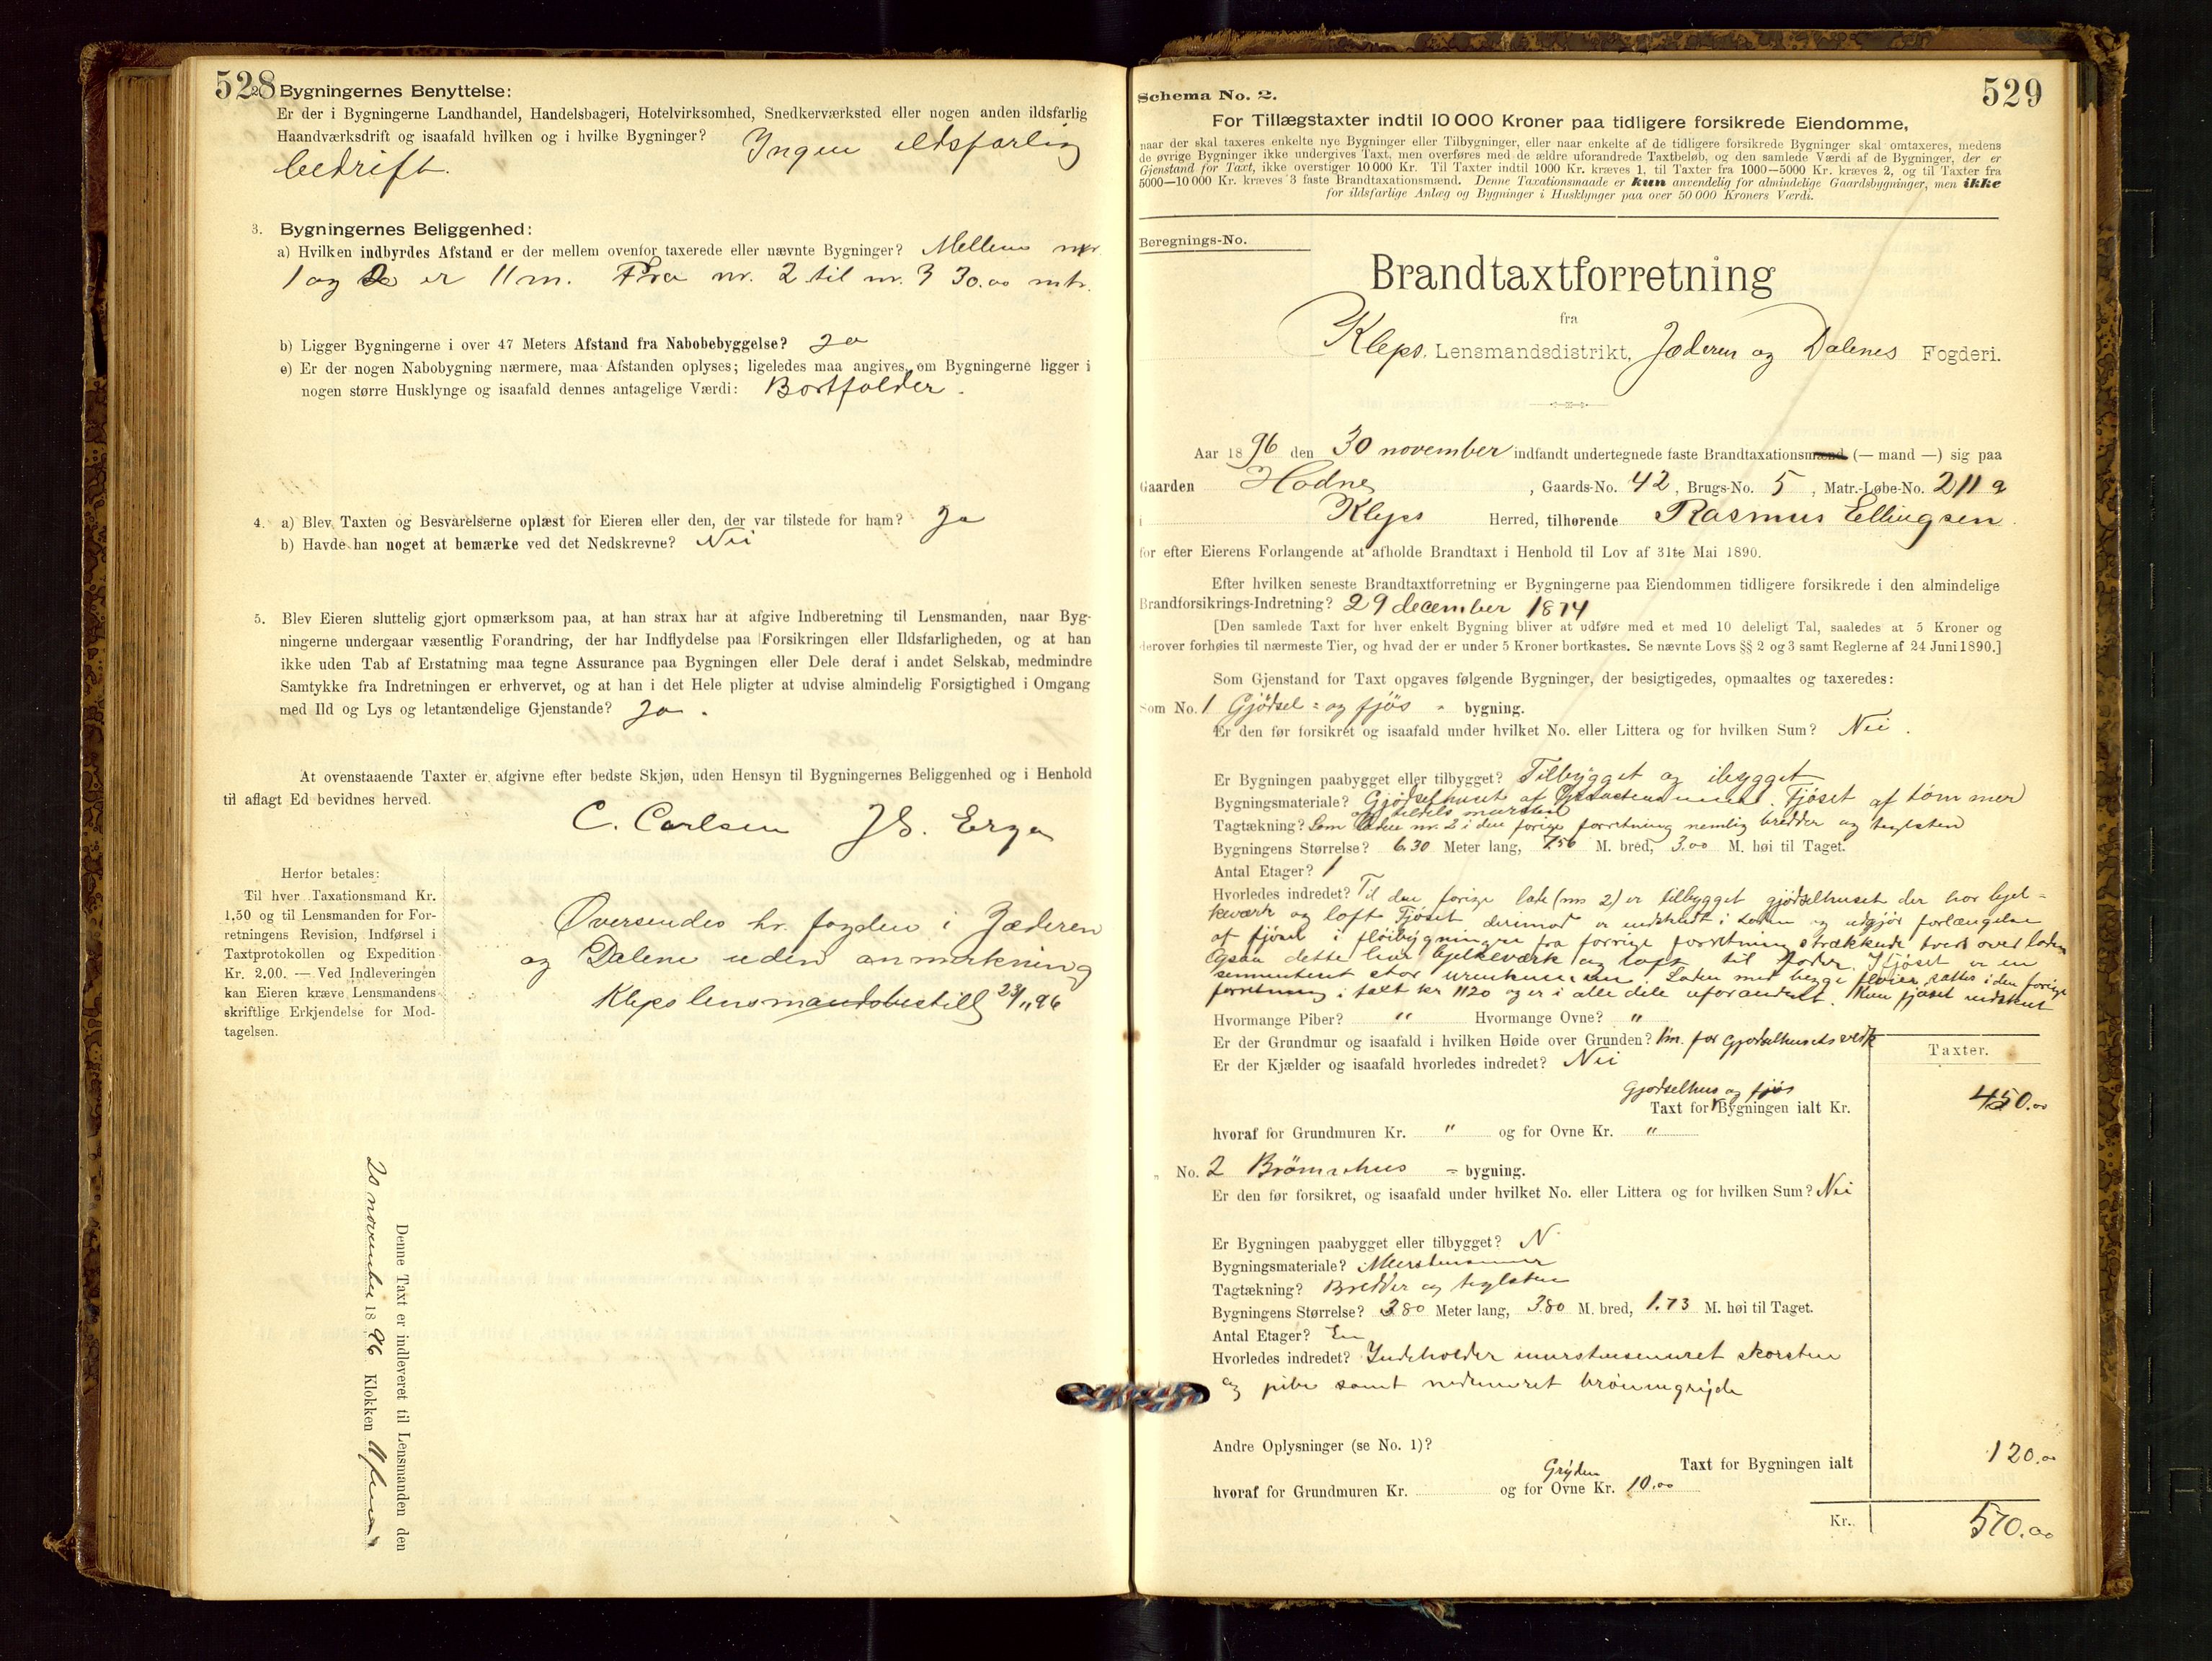 528
2. Bygningernes Benyttelse:
Er der i Bygningerne Landhandel, Handelsbageri, Hotelvirksomhed, Snedkerværksted eller nogen anden ildsfarlig
Haandværksdrift og isaafald hvilken og i hvilke Bygninger? Ingen ildsfarlig
bedrift.
3. Bygningernes Beliggenhed:
a) Hvilken indbyrdes Afstand er der mellem ovenfor taxerede eller nævnte Bygninger? Mellem nr
1 og 2 er 11 m. Fra nr. 2 til nr. 3 30.00 mtr.
b) Ligger Bygningerne i over 47 Meters Afstand fra Nabobebyggelse? Ja
c) Er der nogen Nabobygning nærmere, maa Afstanden oplyses; ligeledes maa angives, om Bygningerne ligger i
nogen større Husklynge og isaafald dennes antagelige Værdi: Bortfalder.
4. a) Blev Taxten og Besvarelserne oplæst for Eieren eller den, der var tilstede for ham? Ja
b) Havde han noget at bemærke ved det Nedskrevne? Nei
5. Blev Eieren sluttelig gjort opmærksom paa, at han strax har at afgive Indberetning til Lensmanden, naar Byg-
ningerne undergaar væsentlig Forandring, der har Indflydelse paa Forsikringen eller Ildsfarligheden, og at han
ikke uden Tab af Erstatning maa tegne Assurance paa Bygningen eller Dele deraf i andet Selskab, medmindre
Samtykke fra Indretningen er erhvervet, og at han i det Hele pligter at udvise almindelig Forsigtighed i Omgang
med Ild og Lys og letantændelige Gjenstande? Ja.
At ovenstaaende Taxter er afgivne efter bedste Skjøn, uden Hensyn til Bygningernes Beliggenhed og i Henhold
til aflagt Ed bevidnes herved.
C. Carlsen J. E. Erga
Herfor betales:
Til hver Taxationsmand Kr.
1,50 og til Lensmanden for For-
retningens Revision, Indførsel i
Taxtprotokollen og Expedition
Kr. 2.00. — Ved Indleveringen
kan Eieren kræve Lensmandens
skriftlige Erkjendelse for Mod-
tagelsen.
Oversendes hr. fogden i Jæderen
og Dalene uden anmerkning
Kleps lensmandsbestill 23/11 96
Denne Taxt er indleveret til Lensmanden den
20 november 1896 Klokken
529
Schema No. 2.
For Tillægstaxter indtil 10 000 Kroner paa tidligere forsikrede Eiendomme,
naar der skal taxeres enkelte nye Bygninger eller Tilbygninger, eller naar enkelte af de tidligere forsikrede Bygninger skal omtaxeres, medens
de øvrige Bygninger ikke undergives Taxt, men overføres med de ældre uforandrede Taxtbeløb, og den samlede Værdi af de Bygninger, der er
Gjenstand for Taxt, ikke overstiger 10 000 Kr. Til Taxter indtil 1000 Kr. kræves 1, til Taxter fra 1000—5000 Kr. kræves 2, og til Taxter fra
5000—10 000 Kr. kræves 3 faste Brandtaxationsmænd. Denne Taxationsmaade er kun anvendelig for almindelige Gaardsbygninger, men ikke
for ildsfarlige Anlæg og Bygninger i Husklynger paa over 50 000 Kroners Værdi.
Beregnings-No.
Brandtaxtforretning
fra
Kleps Lensmandsdistrikt, Jæderen og Dalenes Fogderi.
Aar 1896 den 30 november indfandt undertegnede faste Brandtaxationsmænd (— mand —) sig paa
Gaarden Hodne, Gaards-No. 42, Brugs-No. 5, Matr.-Løbe-No. 211 a
i Kleps Herred, tilhørende Rasmus Ellingsen
for efter Eierens Forlangende at afholde Brandtaxt i Henhold til Lov af 31te Mai 1890.
Efter hvilken seneste Brandtaxtforretning er Bygningerne paa Eiendommen tidligere forsikrede i den almindelige
Brandforsikrings-Indretning? 29 december 1874
[Den samlede Taxt for hver enkelt Bygning bliver at udføre med et med 10 deleligt Tal, saaledes at 5 Kroner og
derover forhøies til nærmeste Tier, og hvad der er under 5 Kroner bortkastes. Se nævnte Lovs §§ 2 og 3 samt Reglerne af 24 Juni 1890.]
Som Gjenstand for Taxt opgaves følgende Bygninger, der besigtigedes, opmaaltes og taxeredes:
Som No. 1 Gjödsel= og fjös bygning.
Er den før forsikret og isaafald under hvilket No. eller Littera og for hvilken Sum? Nei.
Er Bygningen paabygget eller tilbygget? Tilbygget og ibygget
Bygningsmateriale? Gjödselhuset af Fjöset af tömmer
og tildels mursten
Tagtækning? Som laden nr. 2 i den forige forretning nemlig bredder og teglsten
Bygningens Størrelse? 6.30 Meter lang, 7.50 M. bred, 3.00 M. høi til Taget.
Antal Etager? 1
Hvorledes indredet? Til den forige lade (nr 2) er tilbygget gjödselhuset der har bjel=
keværk og loft Fjöset derimod er indskudt i laden og udgjör forlængelse
af fjöset i flöibygningen fra forrige forretning strækkende tvers over laden
Ogsaa dette har bjelkeværk og loft til foder. I fjöset er en
sementeret stor urinkum. Laden med begge flöier sattes i den forige
forretning i takt kr 1120 og er i alle dele uforandret. Kun fjöset indskut
Hvormange Piber? " Hvormange Ovne? "
Er der Grundmur og isaafald i hvilken Høide over Grunden? 1 m. for gjødselhusets
Er der Kjælder og isaafald hvorledes indredet? Nei
Taxter.
Gjødselhus og fjøs
Taxt for Bygningen ialt Kr. 450.00
hvoraf for Grundmuren Kr. " og for Ovne Kr. "
No. 2 Brömsehus = bygning.
Er den før forsikret, og isaafald under hvilket No. eller Littera og for hvilken Sum? Nei
Er Bygningen paabygget eller tilbygget? N
Bygningsmateriale?
Tagtækning? Bredder og teglsten
Bygningens Størrelse? 3.80 Meter lang, 3.80 M. bred, 1.73 M. høi til Taget.
Antal Etager? En
Hvorledes indredet? Indeholder murstensmuret skorsten
og pibe samt nedmuret
Andre Oplysninger (se No. 1)?
Taxt for Bygningen ialt 120.00
Gryden
hvoraf for Grundmuren Kr. og for Ovne Kr. 10.00
Kr. 570.00